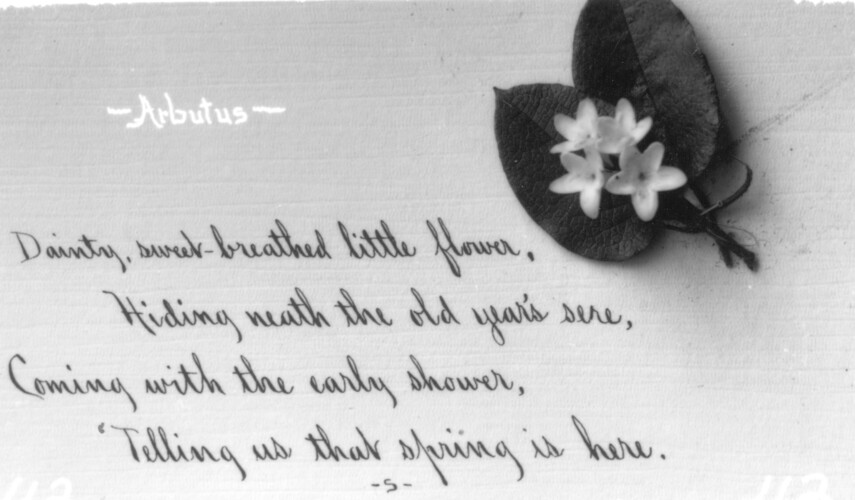 -Arbutus-
Dainty, sweet-breathed little flower,
Hiding neath the old year's sere,
Coming with the early shower,
"Telling us that spring is here.
-S-